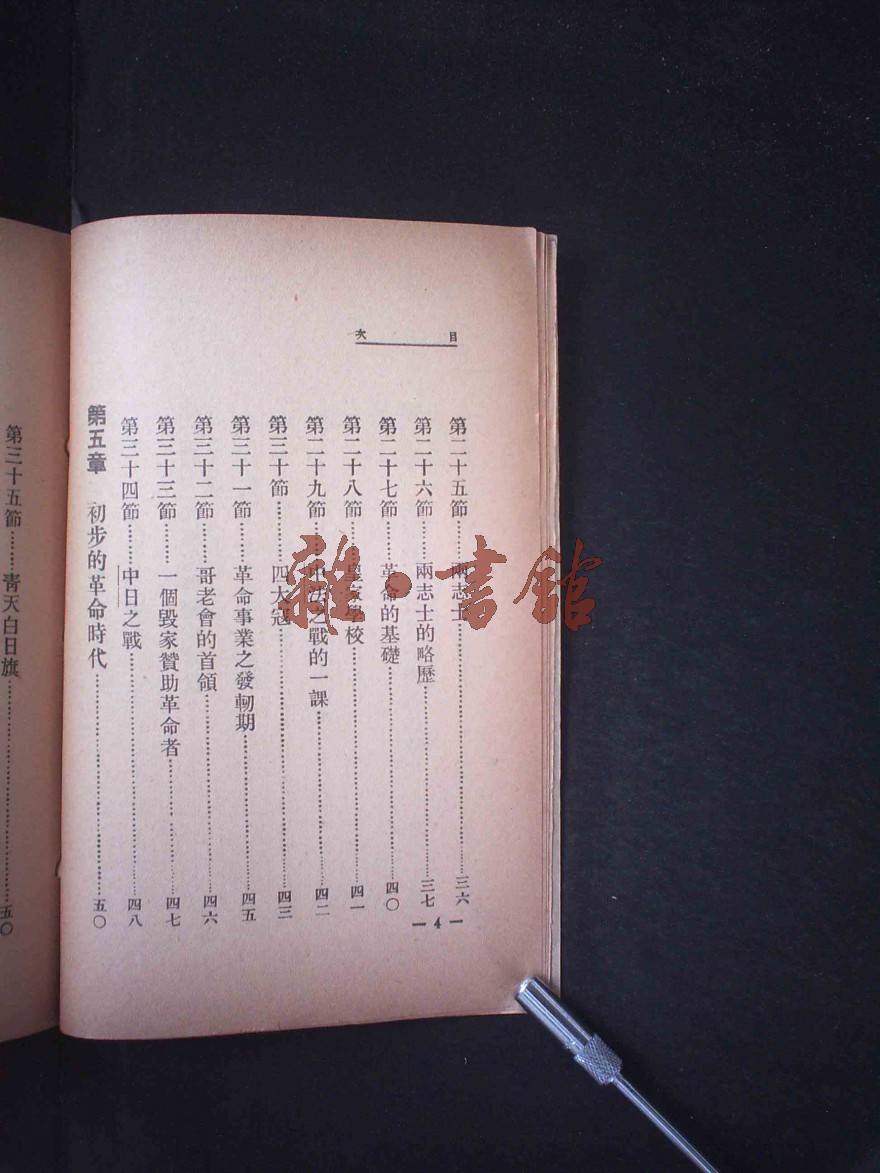 目次
第二十五節………兩志士………三六
第二十六節………兩志士的略歷………三七
第二十七節………革命的基礎………四〇
第二十八節………皇家學校………四一
第二十九節………中法之戰的一課………四二
第三十節………四大寇………四三
第三十一節………革命事業之發軔期………四五
第三十二節………哥老會的首領………四六
第三十三節………一個毀家贊助革命者………四七
第三十四節………中日之戰………四八
第五章 初步的革命時代………五〇
— 4 —
第三十五節………青天白日旗………五〇
雜·書館